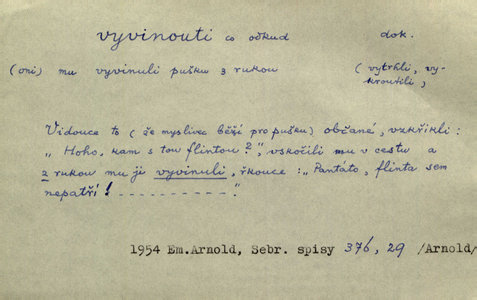 vyvinouti co odkud dok.
(oni) mu vyvinuli pušku z rukou (vytrhli, vy-
kroutili,
Vidouce to (že myslivec běží pro pušku) občané, vzkřikli:
"Hoho, kam s tou flintou?", vskočili mu v cestu a
z rukou mu ji vyvinuli, řkouce: "Pantáto, flinta sem
nepatří! - - - - - - - - - - ."
1954 Em.Arnold, Sebr. spisy 376, 29 /Arnold/